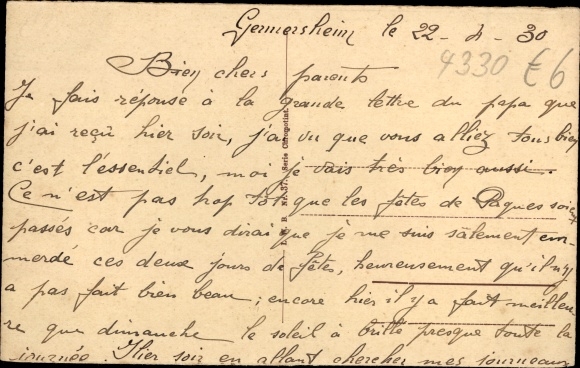 Germersheim le 22-4-30
4330 £6
Bien chers parents
Je fais réponse à la grande lettre du papa que
j'ai reçu hier soir, j'ai vu que vous alliez tous bien
c'est l'essentiel, moi je vais très bien aussi.
Ce n'est pas trop tôt que les fêtes de Paques soient
passés car je vous dirai que je me suis sâlement em-
merdé ces deux jours de fêtes, heureusement qu'il n'y
a pas fait bien beau; encore hier il y a fait meilleu-
re que dimanche le soleil à brille presque toute la
journée. Hier soir en allant chercher mes journeaux
Serie Chromolist